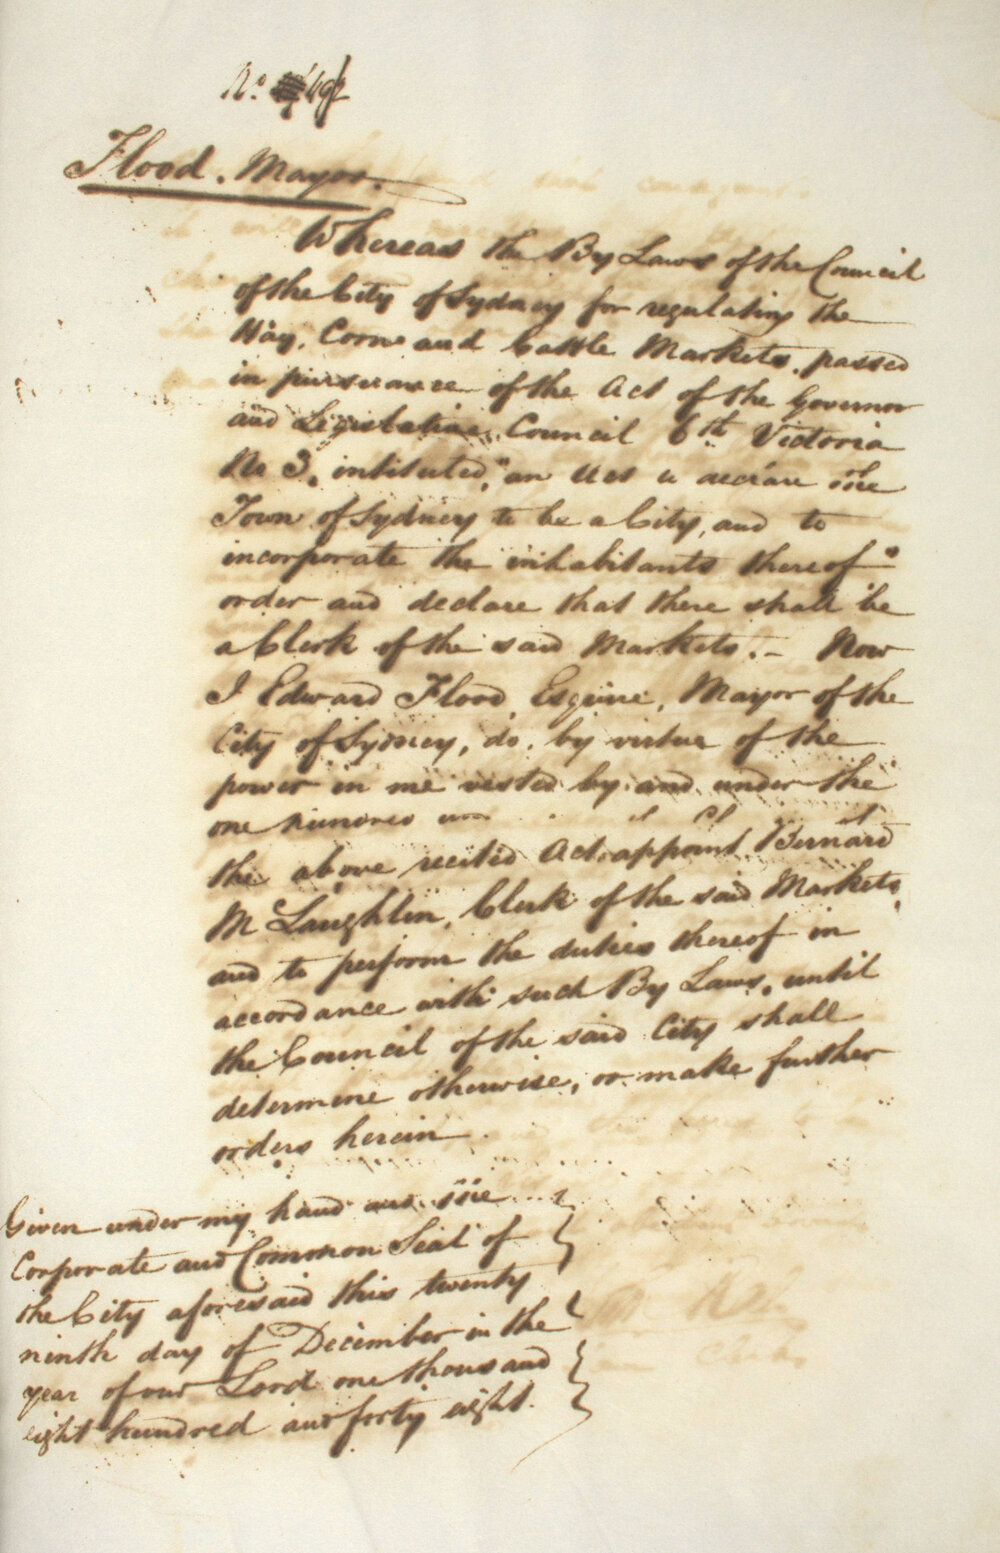 No. 49
Flood. Mayor.
Whereas the By Laws of the Council
of the City of Sydney for regulating the
Hay, Corn and Cattle Markets, passed
in pursuance of the Act of the Governor
and Legislative Council 6th Victoria
No 3, intituled, "an Act to declare the
Town of Sydney to be a City, and to
incorporate the inhabitants thereof"
order and declare that there shall be
a Clerk of the said Markets. - Now
I Edward Flood, Esquire, Mayor of the
City of Sydney, do, by virtue of the
power in me vested by and under the
one hundred
the above recited Act appoint Bernard
McLaughlin, Clerk of the said Markets,
and to perform the duties thereof in
accordance with such By Laws, until
the Council of the said City shall
determine otherwise, or make further
orders herein.
Given under my hand and the
Corporate and Common Seal of
the City aforesaid this twenty
ninth day of December in the
year of our Lord one thousand
eight hundred and forty eight.